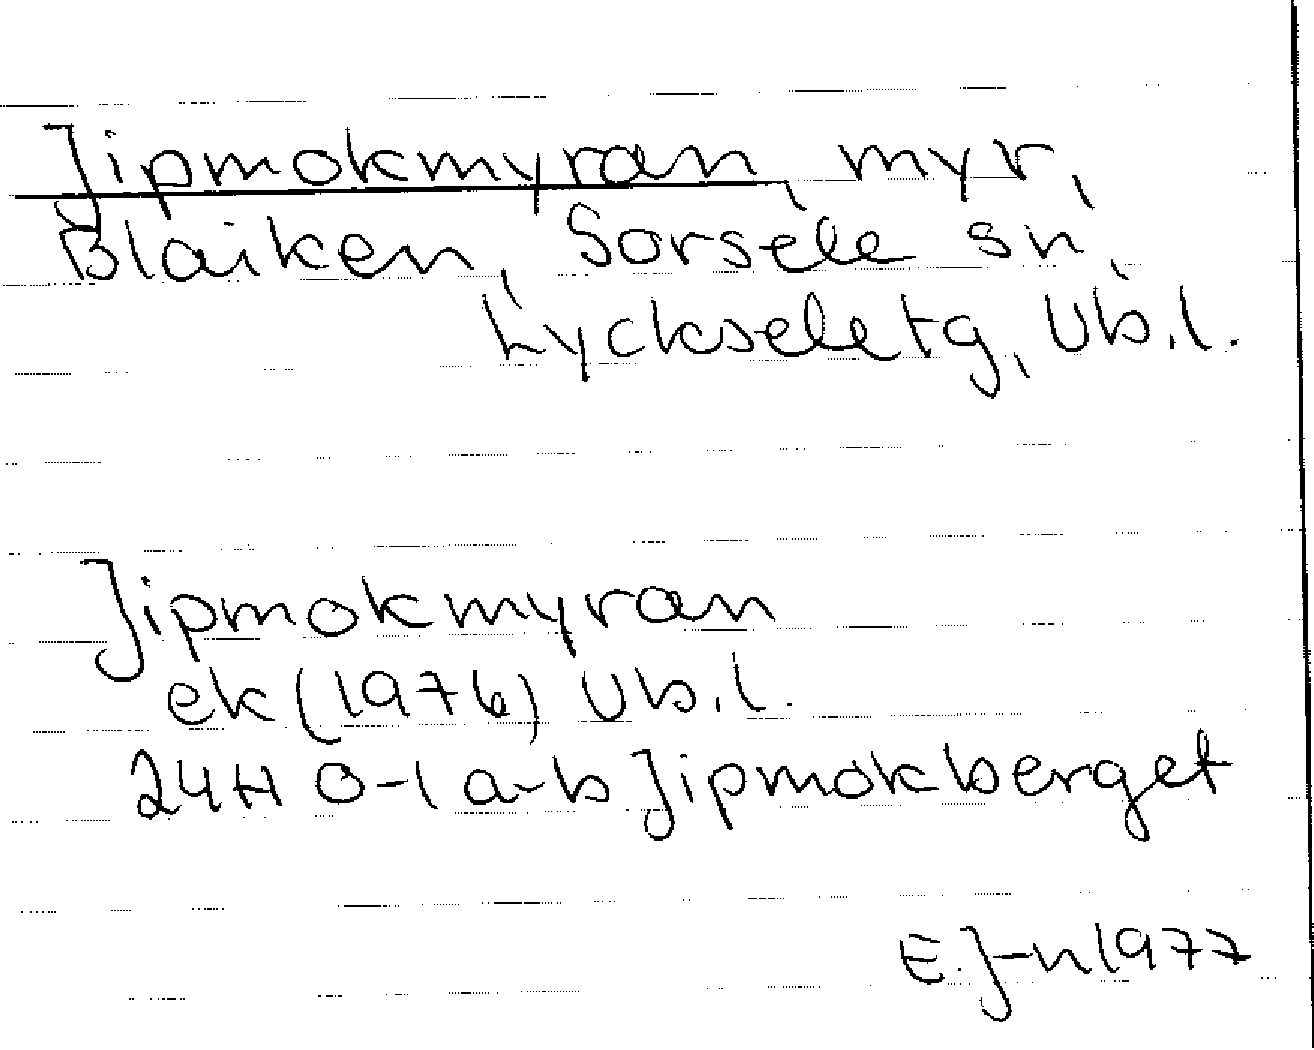 Jipmokmyran, myr,
Blaiken, Sorsele sn,
Lyckseletg, Vb.l.
Jipmokmyran
ek (1976) Vb.l.
24H 0-1 a-b Jipmokberget
E. J-n 1977